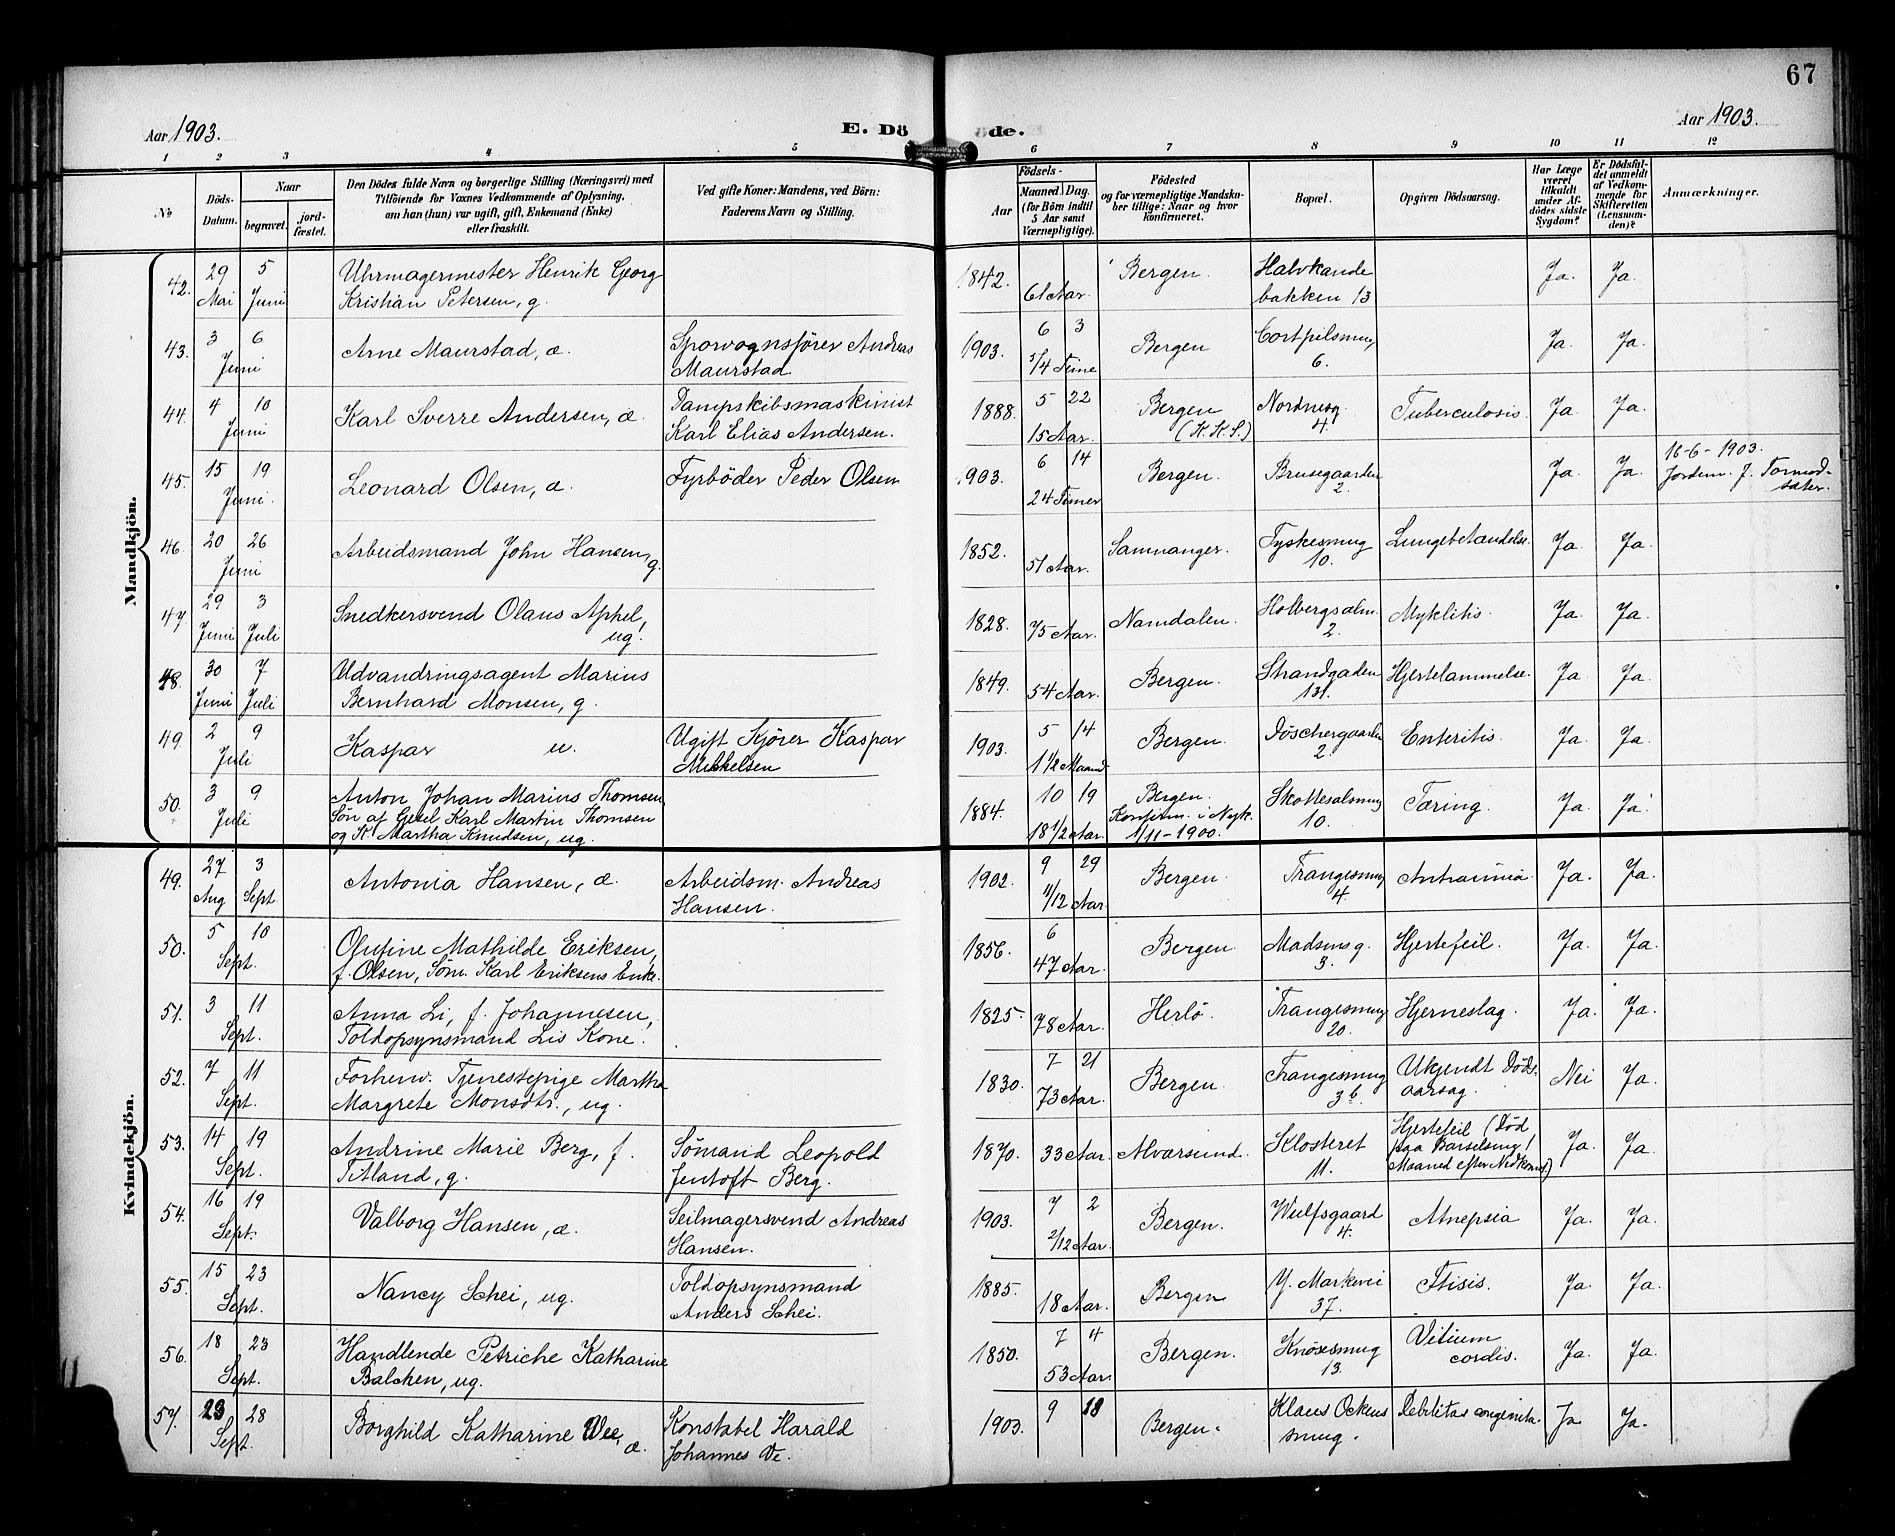 67
Aar 1903.
E. Dö
öde.
Aar 1903.
1 2 3 4 5 6 7 8 9 10 11 12
No
Döds-Datum.
Naar
begravet.
jord-fæstet.
Den Dödes fulde Navn og borgerlige Stilling (Næringsvei) med
Tilföiende for Voxnes Vedkommende af Oplysning,
om han (hun) var ugift, gift, Enkemand (Enke)
eller fraskilt.
Ved gifte Koner: Mandens, ved Börn:
Faderens Navn og Stilling.
Födsels-
Aar
Maaned. Dag.
(for Börn indtil
5 Aar samt
Værnepligtige).
Födested
og for værnepligtige Mandska-
ber tillige: Naar og hvor
konfirmeret.
Bopæl.
Opgiven Dödsaarsag.
Har Læge
været
tilkaldt
under Af-
dödes sidste
Sygdom?
Er Dödsfal-
det anmeldt
af Vedkom-
mende for
Skifteretten
(Lensman-
den)?
Anmærkninger.
Mandkjön.
42. 29 Mai 5 Juni Uhrmagermester Henrik Georg
Kristian Petersen, g. 1842. 61 Aar. Bergen. Halvkande
bakken 13 Ja. Ja.
43. 3 6 Juni Arne Maurstad, æ. Sporvognsfører Andreas
Maurstad. 1903. 6 3 5/4 Time Bergen Cortpilsmug
6. Ja. Ja.
44. 4 10 Juni Karl Sverre Andersen, æ. Dampskibsmaskinist
Karl Elias Andersen. 1888. 5 22 15 Aar. Bergen
(K.K.S.) Nordnesg.
4. Tuberculosis. Ja. Ja.
45. 15 19 Juni. Leonard Olsen, æ. Fyrböder Peder Olsen 1903. 6 14 24 Timer Bergen. Brusegaarden
2. Ja. Ja. 16-6-1903.
Jordm. J. Tormod-
sæter.
46. 20 26 Juni Arbeidsmand John Hansen,
g. 1852. 51 Aar. Samnanger. Tyskesmug
10. Lungebetændelse. Ja. Ja.
47. 29 Juni 3 Juli Snedkersvend Olaus Aphel,
ug. 1828. 75 Aar. Namdalen. Holbergsalm.
2. Myklitis. Ja. Ja.
48. 30 Juni 7 Juli Udvandringsagent Marius
Bernhard Monsen, g. 1849. 54 Aar. Bergen. Strandgaden
131. Hjertelammelse. Ja. Ja.
49. 2 9 Juli Kaspar u. Ugift Kjører Kaspar
Mikkelsen 1903. 5 14 1 1/2 Maaned Bergen. Döschergaarden
2. Enteritis. Ja. Ja.
50. 3 9 Juli Anton Johan Marius Thomsen
Søn af Karl Martin Thomsen
og Martha Knudsen, ug. 1884. 10 19 18 1/2 Aar. Bergen.
Konfirm. i Nyk.
1/11-1900. Skottesalsmug
10. Tæring. Ja. Ja.
Kvindekjön.
49. 27 Aug 3 Sept. Antonia Hansen, æ. Arbeidsm. Andreas
Hansen. 1902. 9 29 11/12 Aar. Bergen. Trangesmug
4. Ja. Ja.
50. 5 10 Sept. Olufine Mathilde Eriksen,
f. Olsen, Søm. Karl Eriksens Enke. 1856. 6 47 Aar. Bergen Madsensg.
3. Hjertefeil. Ja. Ja.
51. 3 11 Sept. Anna Li, f. Johannesen,
Toldopsynsmand Lis Kone. 1825. 78 Aar. Herlö. Trangesmug
20. Hjerneslag. Ja. Ja.
52. 7 11 Sept. Forhenv. Tjenestepige Martha
Margrete Monsdtr., ug. 1830. 7 21 73 Aar. Bergen. Trangesmug
3 b. Ukjendt Döds-
aarsag. Nei Ja.
53. 14 19 Sept. Andrine Marie Berg, f.
Titland, g. Sömand Leopold
Jentoft Berg. 1870. 33 Aar. Alversund. Klosteret
11. Hjertefeil (Död
paa Barselseng 1
Maaned efter Nedkomst) Ja. Ja.
54. 16 19 Sept. Valborg Hansen, æ. Seilmagersvend Andreas
Hansen. 1903. 7 2 2/12 Aar. Bergen. Wulfsgaard
4. Atrepsia Ja. Ja.
55. 15 23 Sept. Nancy Schei, ug. Toldopsynsmand
Anders Schei. 1885. 18 Aar. Bergen Y. Markevei
37. Ftisis. Ja. Ja.
56. 18 23 Sept. Handlende Petriche Katharine
Balchen, ug. 1850. 7 4 53 Aar. Bergen. Knösesmug
13. Vitium
cordis. Ja. Ja.
57. 23 28 Sept. Borghild Katharine Wee,
æ. Konstabel Harald
Johannes Ve. 1903. 9 18 Bergen. Klaus Ockens
smug. Debilitas congenita. Ja Ja.